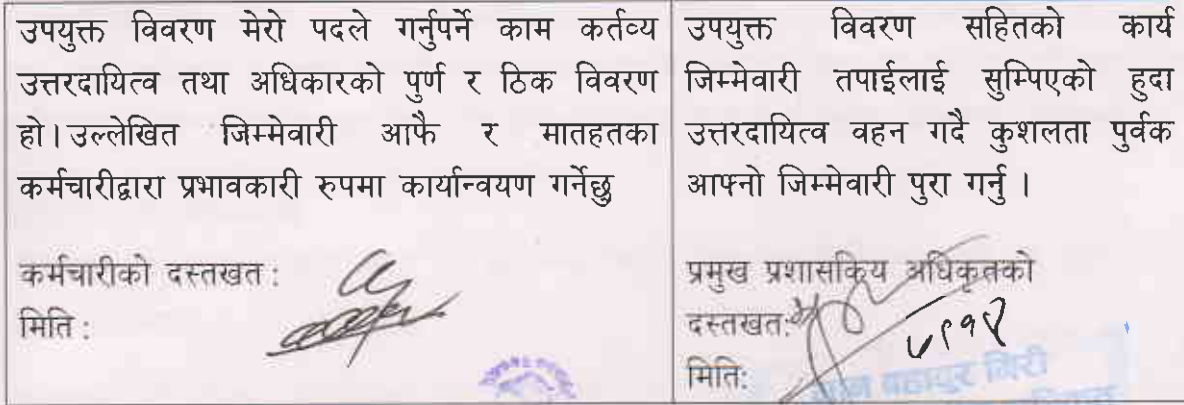 उपयुक्त विवरण मेरो पदले गर्नुपर्ने काम कर्तव्य
उत्तरदायित्व तथा अधिकारको पुर्ण र ठिक विवरण
हो। उल्लेखित जिम्मेवारी आफै र मातहतका
कर्मचारीद्वारा प्रभावकारी रुपमा कार्यान्वयण गर्नेछु
कर्मचारीको दस्तखत :
मिति :
उपयुक्त विवरण सहितको कार्य
जिम्मेवारी तपाईलाई सुम्पिएको हुदा
उत्तरदायित्व वहन गदै कुशलता पुर्वक
आफ्नो जिम्मेवारी पुरा गर्नु ।
प्रमुख प्रशासकिय अधिकृतको
दस्तखत:
मिति:
बहादुर गिरी